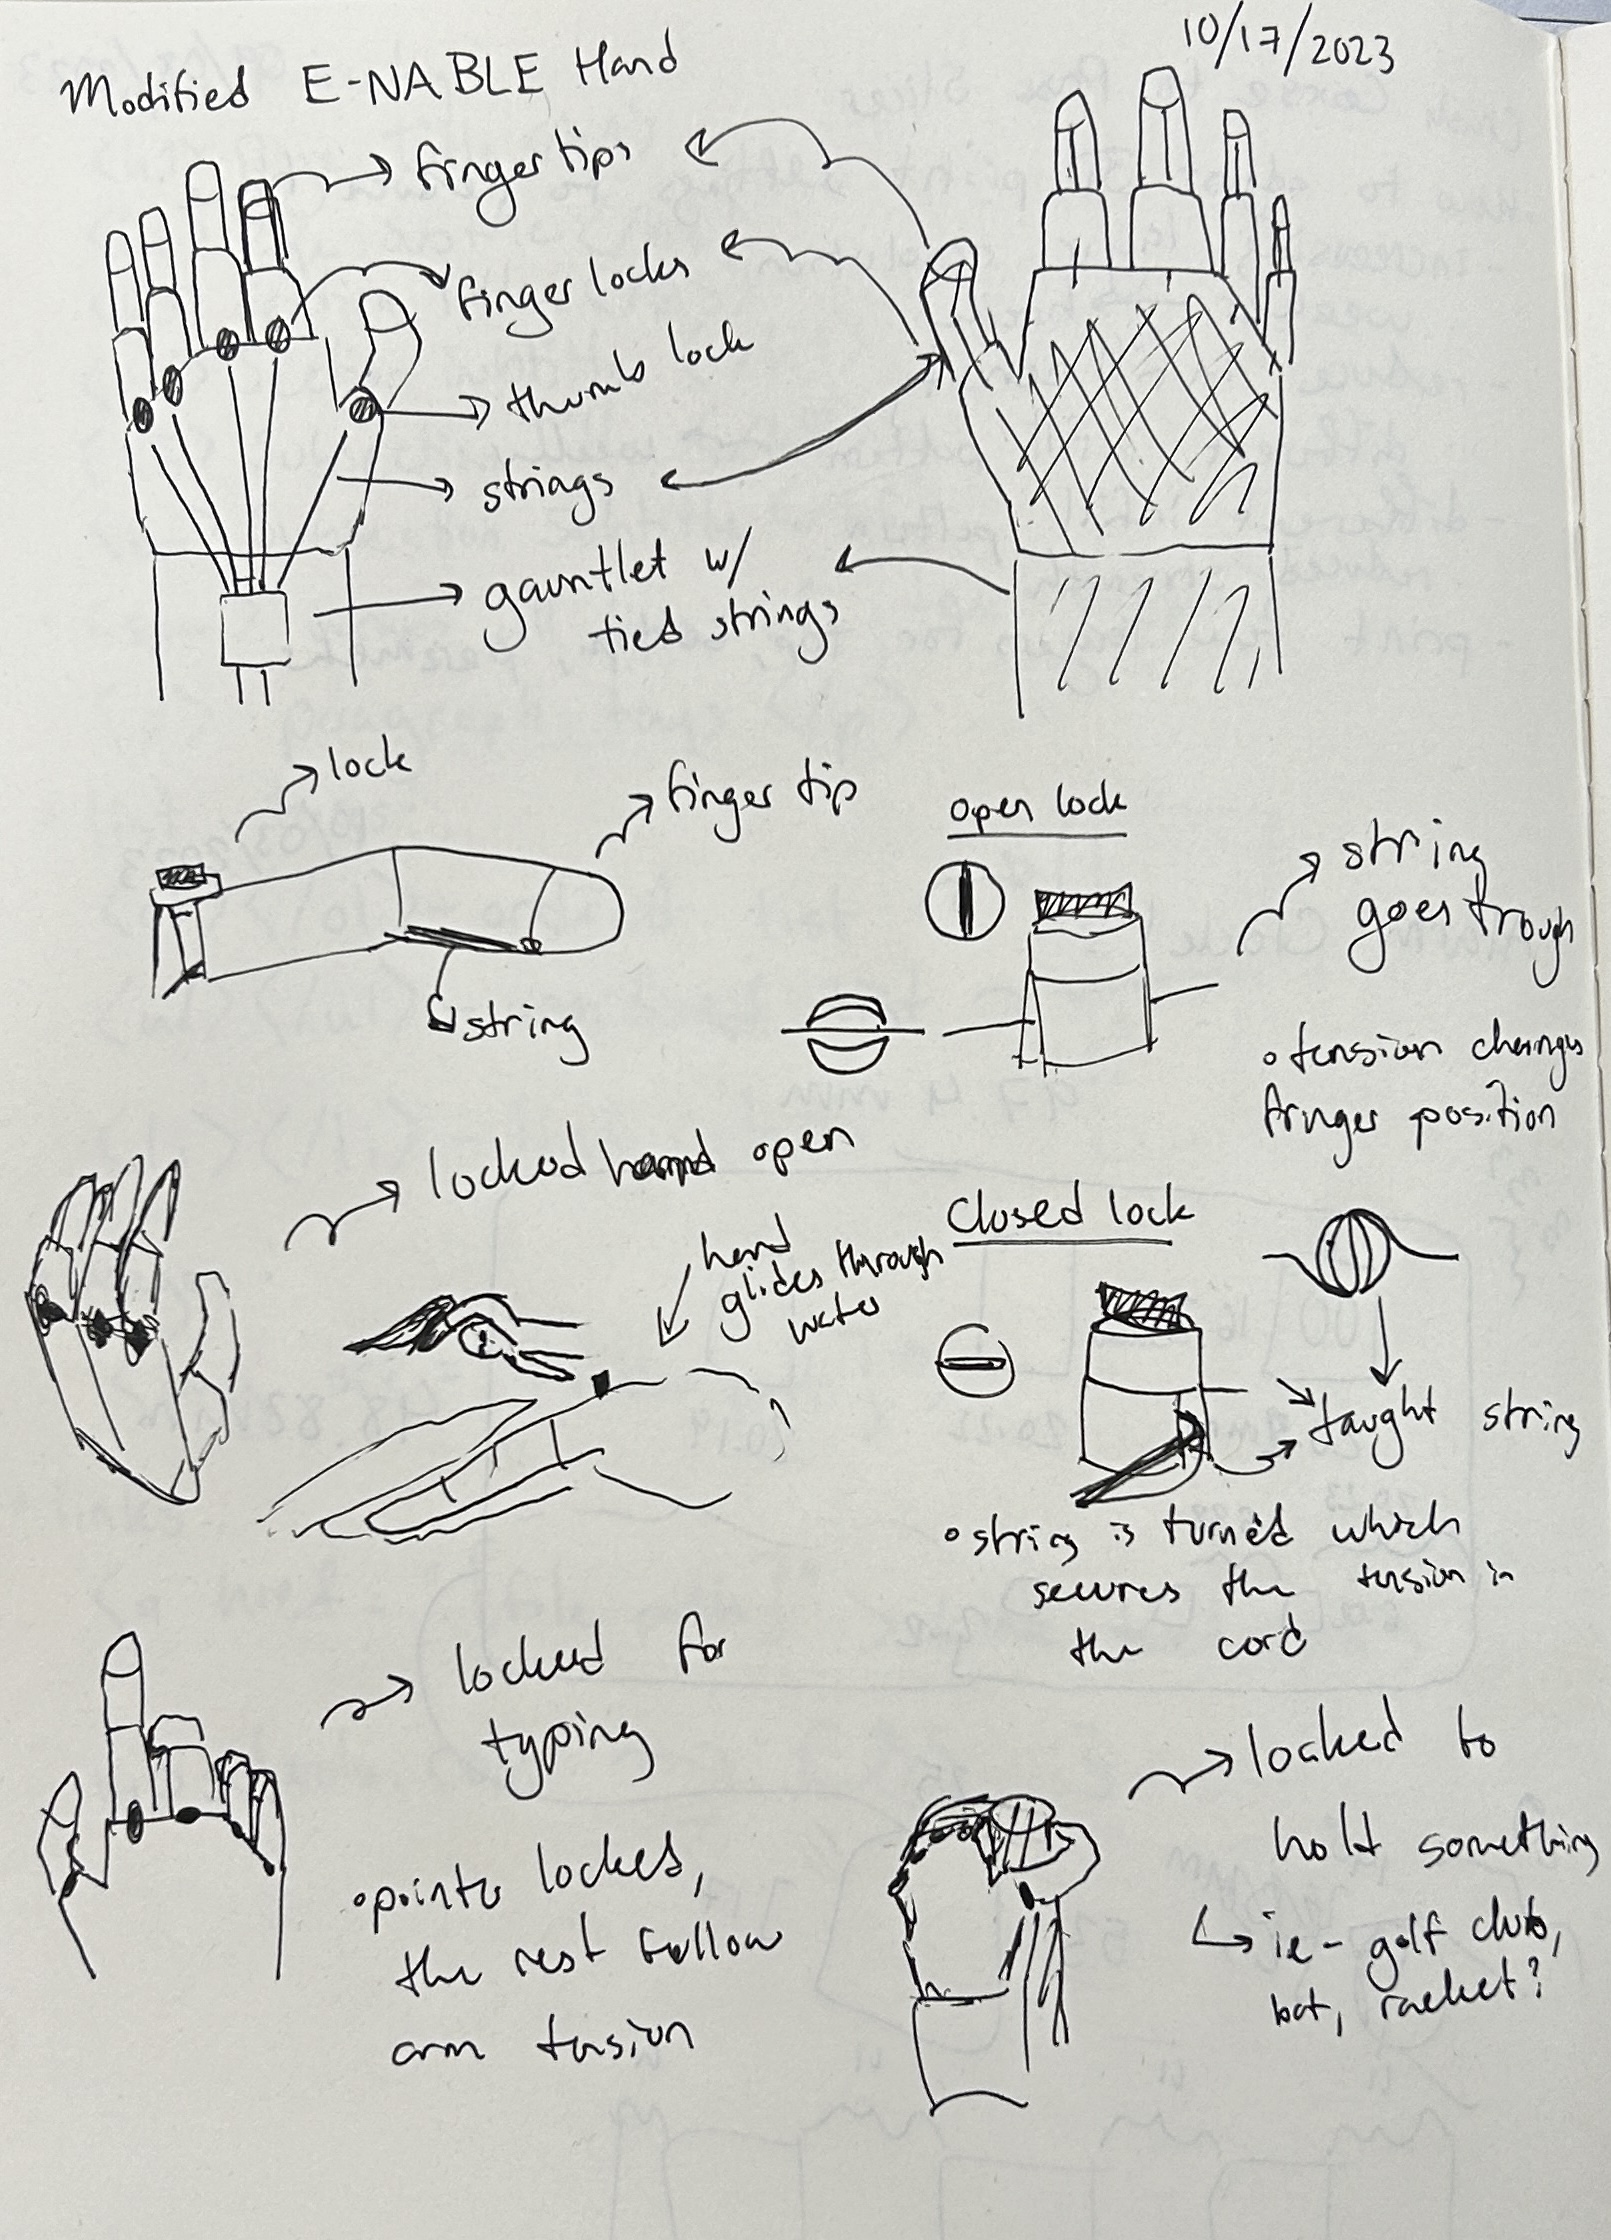 10/17/2023
Modified E-NABLE Hand
fingertips
finger locks
thumb lock
strings
gauntlet w/
tied strings
lock
finger tip
string
open lock
string
goes trough
◦ tension changes
finger position
locked hand open
hand
glides through
water
Closed lock
taught string
◦ string is turned which
secures the tension in
the cord
locked for
typing
◦ pointer locked,
the rest follow
arm tension
locked to
hold something
ie - golf club,
bat, racket?